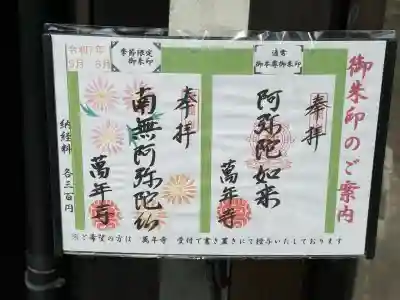 御朱印のご案内
通常
御本尊御朱印
奉拝
阿弥陀如来
萬年寺
季節限定
御朱印
奉拝
南無阿弥陀仏
萬年寺
納経料 各三百円
※ご希望の方は 萬年寺 受付で書き置きにて授与いたしております